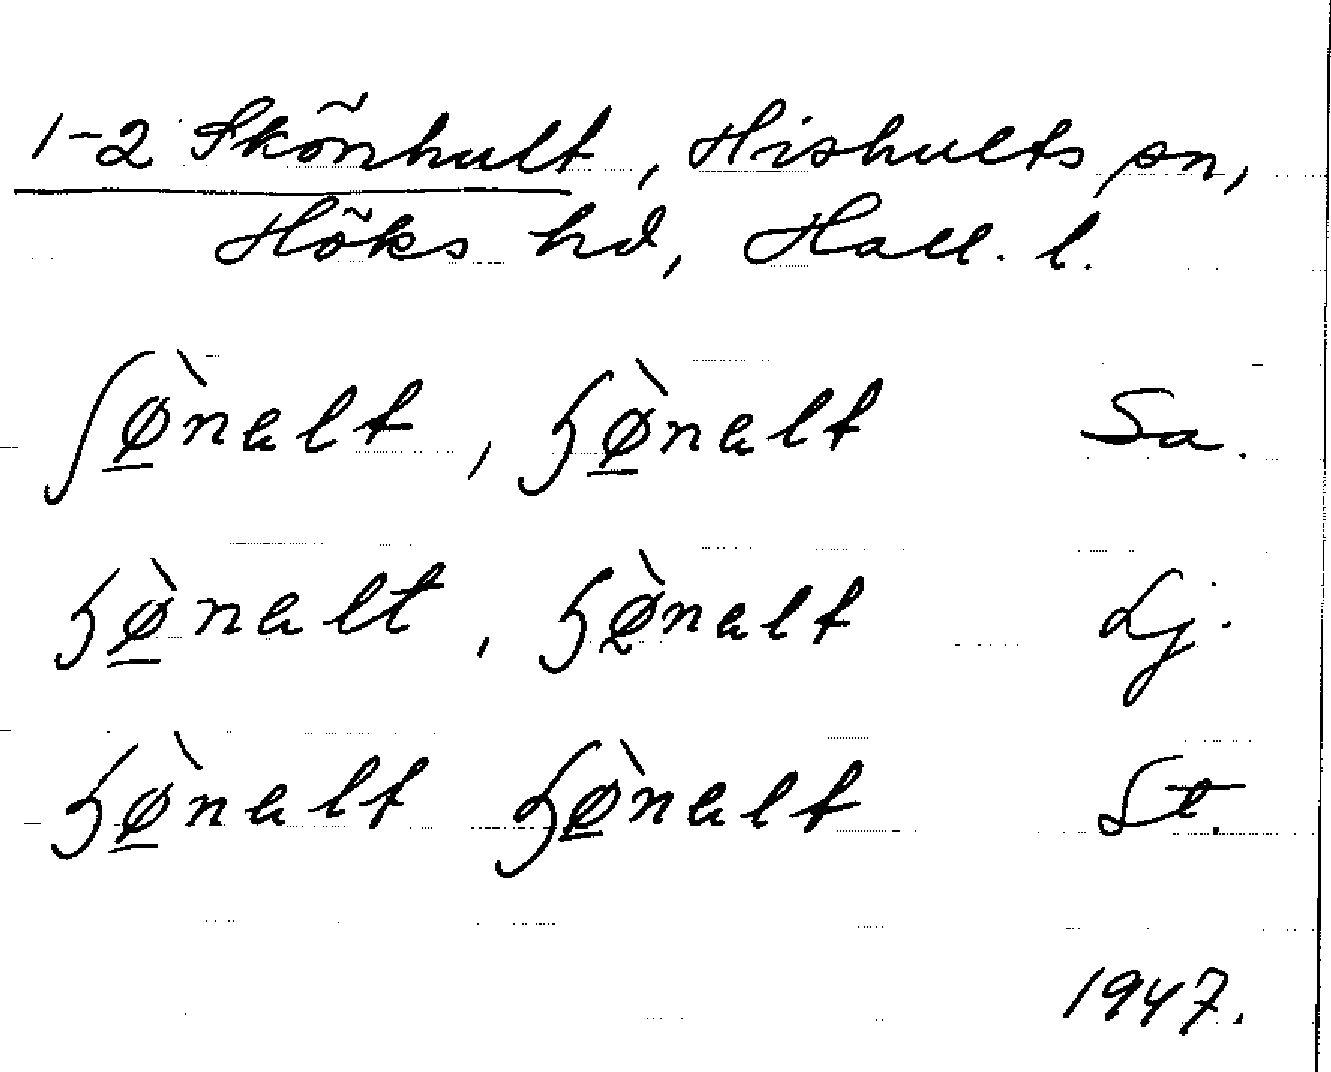 1-2 Skönhult, Hishults sn,
Höks hd, Hall. l.
ʃø̲̀nalt, ɧø̲̀nalt Sa.
ɧø̲̀nalt, ɧø̰̀nalt Lj.
ɧø̲̀nalt ɧø̲̀nalt St.
1947.